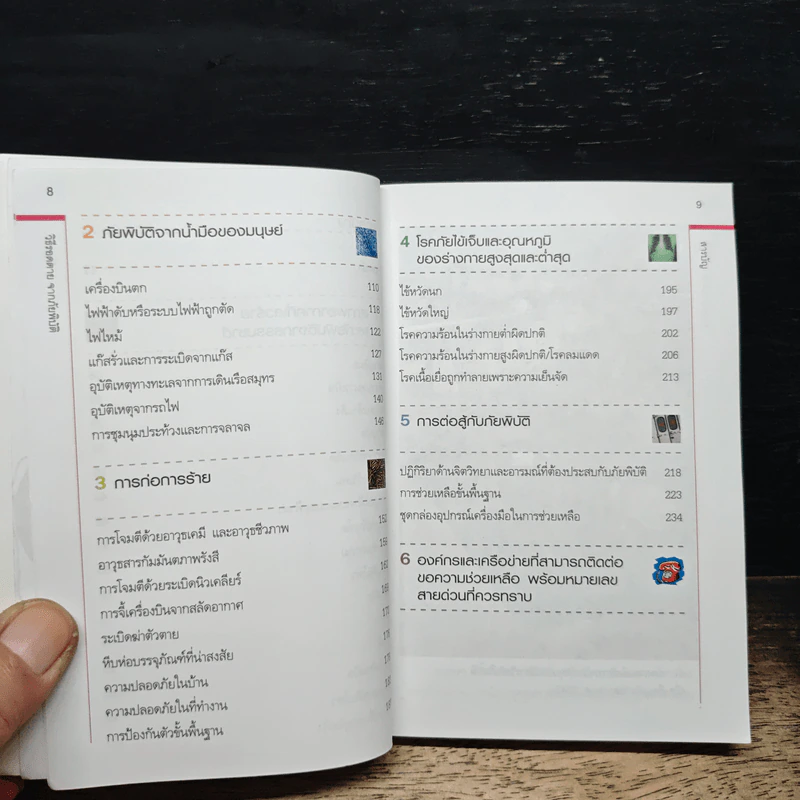 8
วิธีรอดตาย จากภัยพิบัติ
2 ภัยพิบัติจากน้ำมือของมนุษย์
เครื่องบินตก 110
ไฟฟ้าดับหรือระบบไฟฟ้าถูกตัด 118
ไฟไหม้ 122
แก๊สรั่วและการระเบิดจากแก๊ส 127
อุบัติเหตุทางทะเลจากการเดินเรือสมุทร 131
อุบัติเหตุจากรถไฟ 140
การชุมนุมประท้วงและการจลาจล
3 การก่อการร้าย
การโจมตีด้วยอาวุธเคมี และอาวุธชีวภาพ
อาวุธสารกัมมันตภาพรังสี
การโจมตีด้วยระเบิดนิวเคลียร์
การจี้เครื่องบินจากสลัดอากาศ
ระเบิดฆ่าตัวตาย
หีบห่อบรรจุภัณฑ์ที่น่าสงสัย
ความปลอดภัยในบ้าน
ความปลอดภัยในที่ทำงาน
การป้องกันตัวขั้นพื้นฐาน
9
สารบัญ
4 โรคภัยไข้เจ็บและอุณหภูมิ
ของร่างกายสูงสุดและต่ำสุด
ไข้หวัดนก 195
ไข้หวัดใหญ่ 197
โรคความร้อนในร่างกายต่ำผิดปกติ 202
โรคความร้อนในร่างกายสูงผิดปกติ/โรคลมแดด 206
โรคเนื้อเยื่อถูกทำลายเพราะความเย็นจัด 213
5 การต่อสู้กับภัยพิบัติ
ปฏิกิริยาด้านจิตวิทยาและอารมณ์ที่ต้องประสบกับภัยพิบัติ 218
การช่วยเหลือขั้นพื้นฐาน 223
ชุดกล่องอุปกรณ์เครื่องมือในการช่วยเหลือ 234
6 องค์กรและเครือข่ายที่สามารถติดต่อ
ขอความช่วยเหลือ พร้อมหมายเลข
สายด่วนที่ควรทราบ